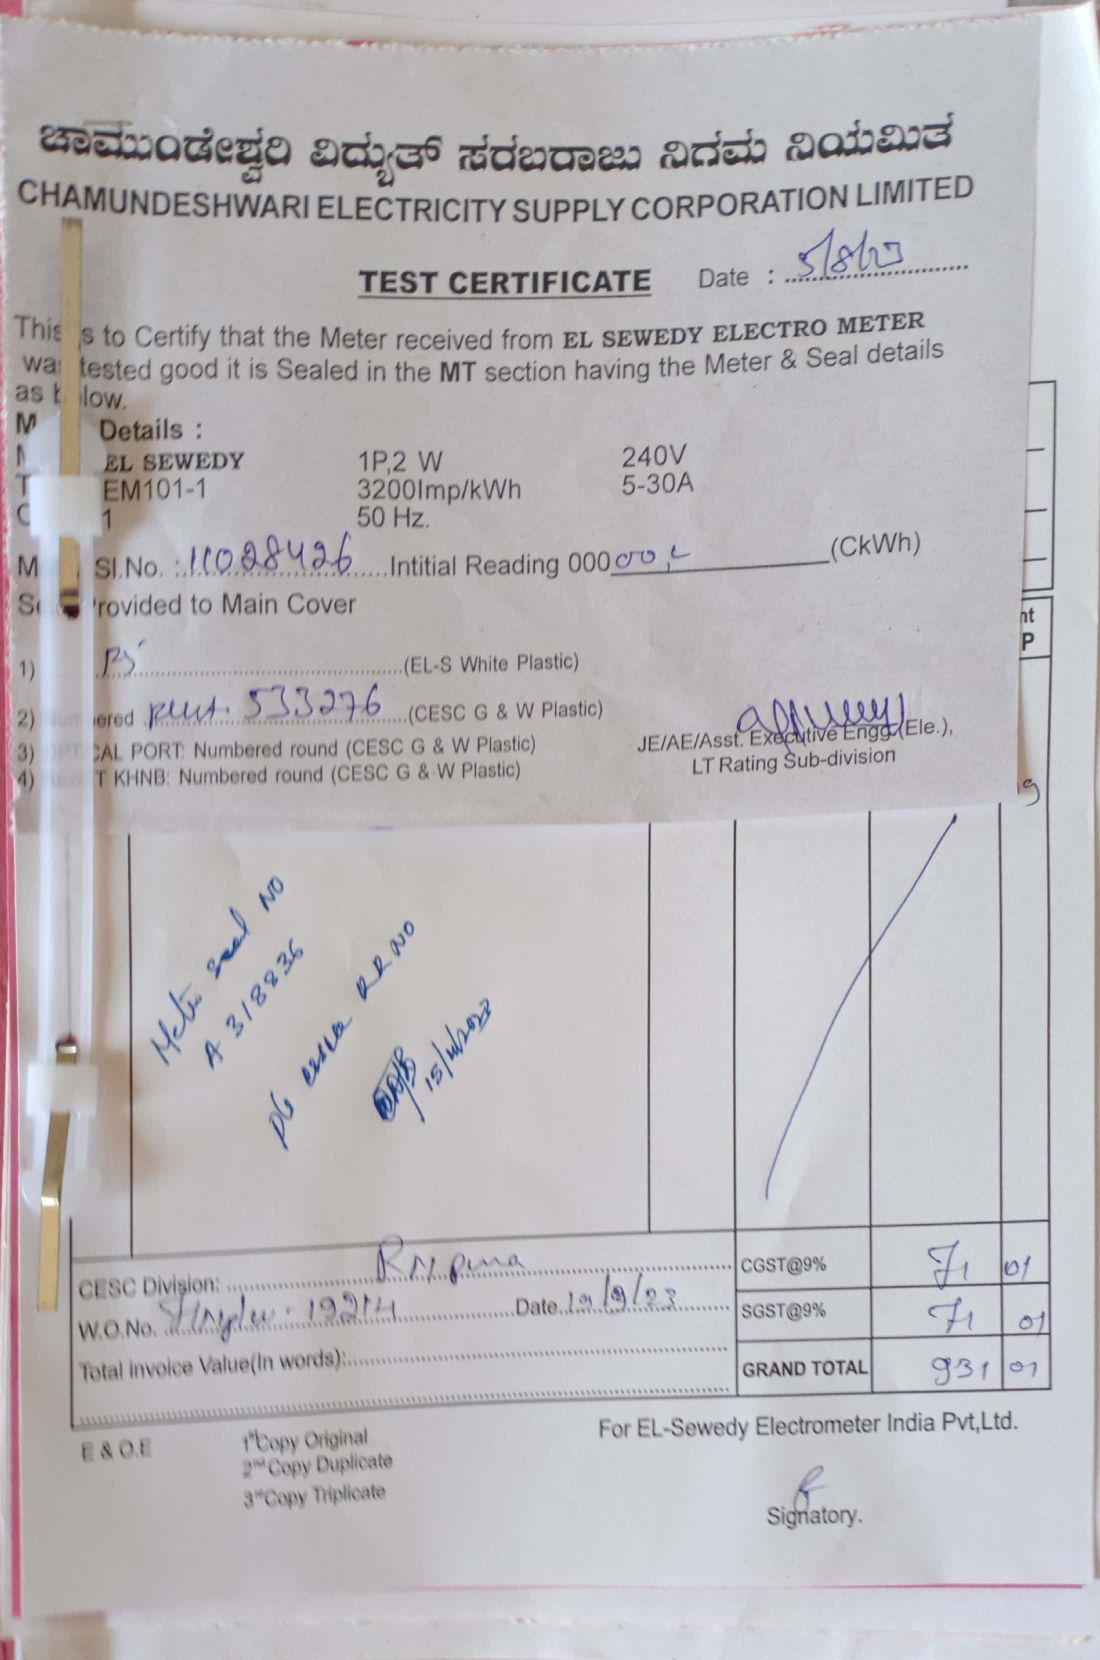 ಚಾಮುಂಡೇಶ್ವರಿ ವಿದ್ಯುತ್ ಸರಬರಾಜು ನಿಗಮ ನಿಯಮಿತ
CHAMUNDESHWARI ELECTRICITY SUPPLY CORPORATION LIMITED
TEST CERTIFICATE Date : 5/8/23
This s to Certify that the Meter received from EL SEWEDY ELECTRO METER
was tested good it is Sealed in the MT section having the Meter & Seal details
as below.
M Details :
EL SEWEDY 1P,2 W 240V
EM101-1 3200Imp/kWh 5-30A
1 50 Hz.
M Sl.No. : 11028426 Intitial Reading 000 00, (CkWh)
Se Provided to Main Cover
1) (EL-S White Plastic)
2) ered 533276 (CESC G & W Plastic)
3) CAL PORT: Numbered round (CESC G & W Plastic)
4) T KHNB: Numbered round (CESC G & W Plastic)
JE/AE/Asst. Executive Engg.(Ele.),
LT Rating Sub-division
nt
P
Meter seal NO
A 318836
DG RR NO
15/11/2023
CESC Division: CGST@9% 71 01
W.O.No. 19214 Date 19/9/23 SGST@9% 71 01
Total Invoice Value(In words): GRAND TOTAL 931 01
E & O.E
1st Copy Original
2nd Copy Duplicate
3rd Copy Triplicate
For EL-Sewedy Electrometer India Pvt,Ltd.
Signatory.